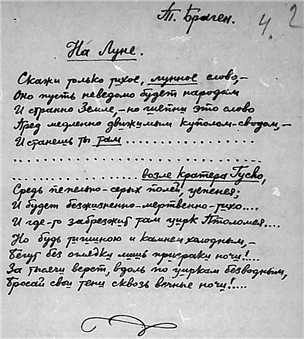 Т. Браген.
4. 2
На Луне.
Скажи только тихое, лунное слово, –
Оно пусть неведомо будет народам
И странно Земле, – но шепни это слово
Пред медленно движимым куполом-сводом, –
И станешь ты там . . . . . . . . . . . . . . . . . .
. . . . . . . . . . . . . . . . . . . . . . . . . . . . . . . .
. . . . . . . . . . . . . . . . возле кратера Гуско,
Средь пепельно-серых полей, цепенея,
И будет безжизненно-мертвенно-тихо....
И где-то забрезжит там цирк Птоломея....
Но будь тишиною и камнем холодным, –
Бегут без оглядки лишь призраки ночи!....
За тысячи верст, вдоль по циркам безводным,
Бросай свои тени сквозь вечные ночи!....